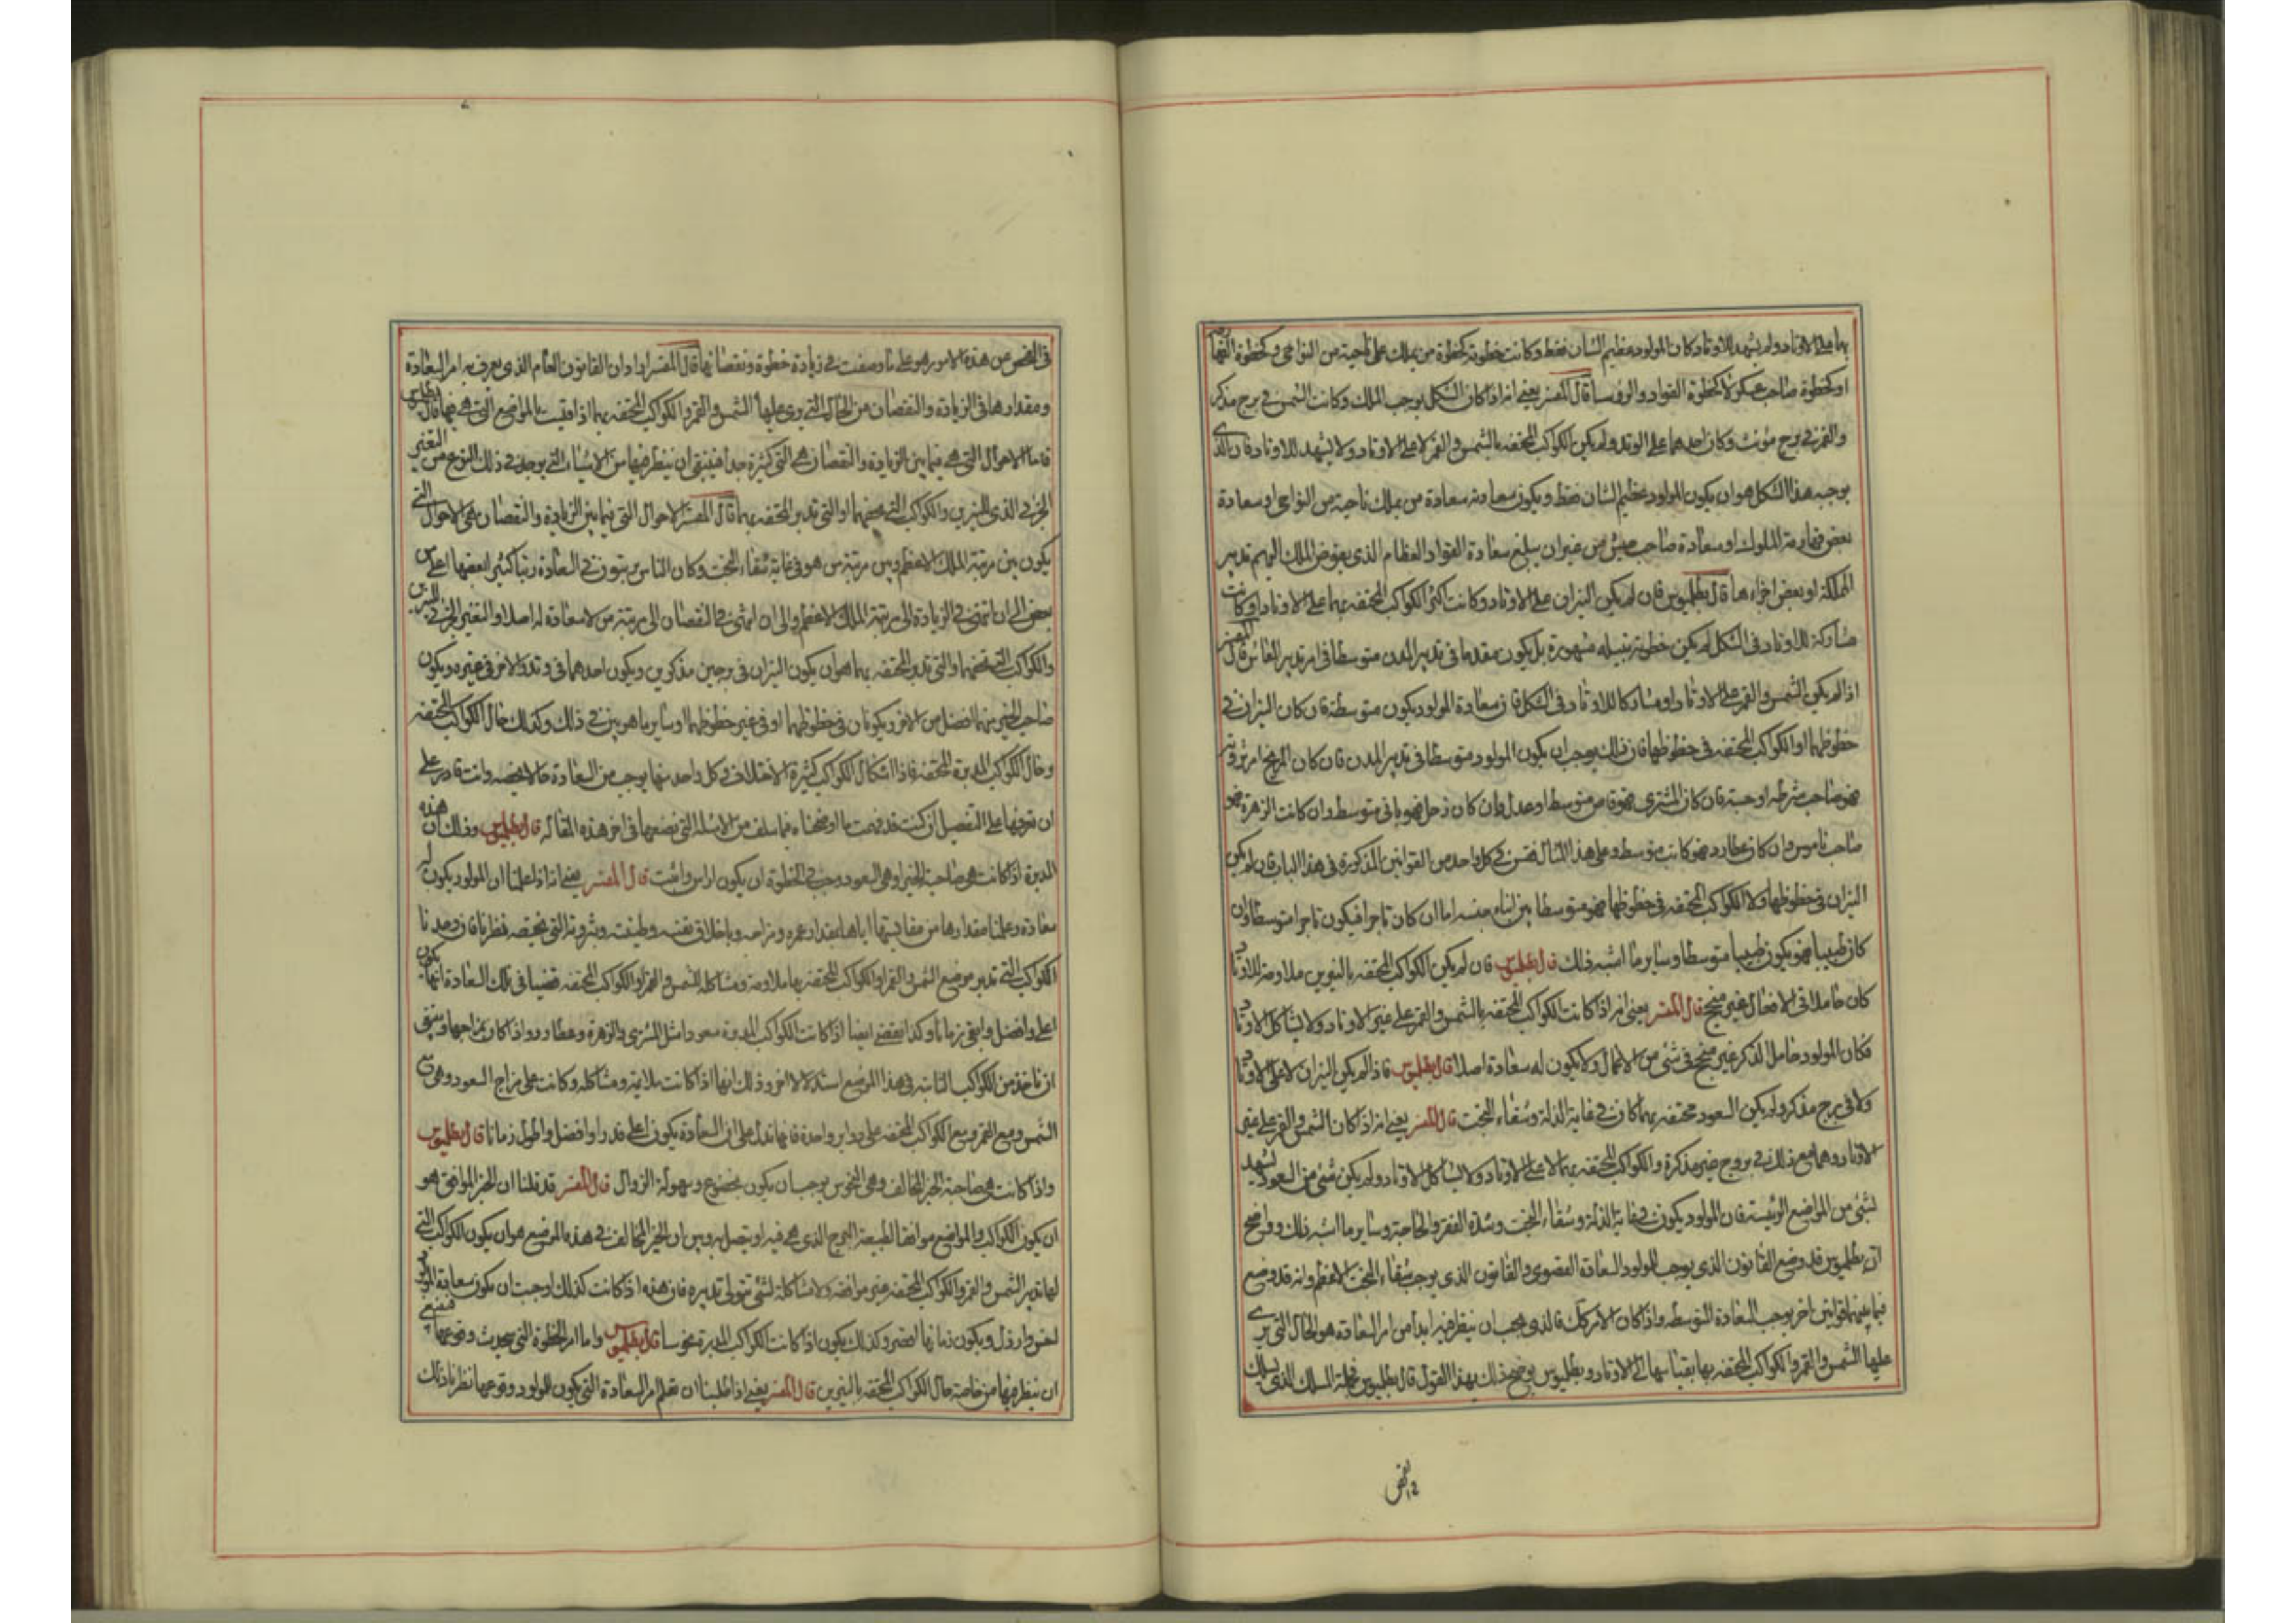 بهما على الاوتاد ولم يشهد للاوتاد وكان المولود عظيم الشان فقط وكانت خطوته كخطوة من يملك على ناحية من النواحى وكخطوة
او كخطوة صاحب عسكر لا كخطوة القواد والروسا قال المفسر يعنى انه اذا كان الشكل يوجب الملك وكانت الشمس فى برج مذكر
والقمر فى برج مؤنث وكان احدهما على الوتد ولم يكن الكواكب المحتفه بالشمس والقمر لا على الاوتاد ولا يشهد للاوتاد فان الذى
يوجبه هذا الشكل هو ان يكون المولود عظيم الشان فقط ويكون سعادته سعادة من يملك ناحية من النواحى او سعادة
بعض الملوك او سعادة صاحب جيش من غير ان يبلغ سعادة القواد العظام الذى يفوض الملك اليهم تدبير
المملكة او بعض اجزاءها قال بطلميوس فان لم يكن النيران على الاوتاد وكانت اكثر الكواكب المحتفه بهما على الاوتاد او كانت
مشاركة للاوتاد فى الشكل لم يكن خطوته بنبيله مشهورة بل يكون مقدما فى تدبير المدن متوسطا فى امر تدبير المعاش قال المفسر
اذا لم يكن الشمس والقمر على الاوتاد او مشاركا للاوتاد فى الشكل فان سعادة المولود يكون متوسطة فان كان النيران فى
خطوظهما او الكواكب المحتفه فى خطوظها فان ذلك يوجب ان يكون المولود متوسطا فى تدبير المدن فان كان المريخ
فهو صاحب شرطه او حسبة فان كان المشترى فهو متوسط او عدل وان كان زحل فهو متوسط وان كانت الزهرة فهو
صاحب ناموس وان كان عطارد فهو كاتب متوسط وعلى هذا المثال فقس فى كل واحد من القوانين المذكورة فى هذا الباب فان لم يكن
النيران فى خطوظهما ولا الكواكب المحتفه فى خطوظها فهو متوسطا بين ابناء جنسه اما ان كان تاجرا فيكون تاجرا متوسطا وان
كان طبيبا فهو يكون طبيبا متوسطا وساير ما اشبه ذلك قال بطلميوس فان لم يكن الكواكب المحتفه بالنيرين ملاومة للاوتاد
كان خاملا فى الافعال غير منجح قال المفسر يعنى انه اذا كانت الكواكب المحتفه بالشمس والقمر على غير الاوتاد ولا يشاكل الاوتاد
فكان المولود خامل الذكر غير منجح فى شئ من الاعمال ولا يكون له سعادة اصلا قال بطلميوس فاذا لم يكن النيران لا على الاوتاد
ولا فى برج مذكر ولم يكن السعود محتفه بهما كان فى غاية الذلة وشقاء البخت قال المفسر يعنى انه اذا كان الشمس والقمر على غير
الاوتاد وهما مع ذلك فى بروج غير مذكرة والكواكب المحتفه بهما لا على الاوتاد ولا يشاكل الاوتاد ولم يكن شئ من السعود يشهد
لشئ من المواضع الرئيسة فان المولود يكون فى غاية الذلة وشقاء البخت وشدة الفقر والحاجة وساير ما اشبه ذلك وواضح
ان بطلميوس قد وضع القانون الذى يوجب للمولود السعادة القصوى والقانون الذى يوجب شقاء البخت الاعظم وانه قد وضع
فيما بينهما قوانين اخر يوجب السعادة المتوسطه واذا كان الامر كك فالذى يجب ان ينظر فيه ابدا من امر السعادة هو الحال التى يرى
عليها الشمس والقمر والكواكب المحتفه بها بقياسها الى الاوتاد وبطلميوس يوضح ذلك بهذا القول قال بطلميوس فجملة المسلك الذى يسلك
فى الفحص عن هذه الامور هو على ما وصفت فى زيادة خطوة ونقصانها قال المفسر ان القانون العام الذى يعرف به امر السعادة
ومقدارها فى الزيادة والنقصان من الحال التى يرى عليها الشمس والقمر والكواكب المحتفه بهما اذا قيست بالمواضع التى هى فيها قال بطلميوس
فاما الاحوال التى هى فيما بين الزيادة والنقصان هى التى كثيرة جدا فينبغى ان ينظر فيها من الاشياء التى يوجد فى ذلك النوع من التغير
الجزئى الذى للنيرين والكواكب التى تحفهما او التى تدبر المحتفه بهما قال المفسر الاحوال التى فيما بين الزيادة والنقصان هى الاحوال التى
يكون بين مرتبة الملك الاعظم وبين مرتبة من هو فى غاية شقاء البخت وكان الناس مرتبون فى السعادة رتبا كثيرا بعضها اعلى من
بعض الى ان تنتهى فى الزيادة الى مرتبة الملك الاعظم والى ان تنتهى فى النقصان الى مرتبة من لا سعادة له اصلا والتغير الجزئى للنيرين
والكواكب التى تحفهما والتى تدبر المحتفه بهما هو ان يكون النيران فى برجين مذكرين ويكون احدهما فى وتد والاخر فى غيره ويكون
صاحب الحيز منهما افضل من الاخر ويكونان فى خطوظهما او فى غير خطوظهما وساير ما هو بين فى ذلك وكذلك حال الكواكب المحتفه
وحال الكواكب المدبرة للمحتفه فاذا اشكال الكواكب كثيرة الاختلاف فى كل واحد منها يوجب من السعادة حالا يخصه وانت قادر على
ان تعرفها على التفصيل ان كنت قد فهمت ما اوضحناه فيما سلف من الامثلة التى نضعها فى اخر هذه المقاله قال بطلميوس وذلك ان هذه
المدبرة اذا كانت هى صاحبة الحيز او هى السعود وجب فى الخطوة ان يكون اراس واثبت قال المفسر يعنى انه اذا علمنا ان المولود يكون له
سعادة وعلمنا مقدارها من مقايستها اياها بمقدار عمره ومزاجه وباخلاق نفسه وطينته وبثروته التى تخصه نظرنا فان وجدنا
الكواكب التى تدبر موضع الشمس والقمر او الكواكب المحتفه بها ملاومة ومشاكلة للشمس والقمر او الكواكب المحتفه قضينا فى تلك السعادة انها يكون
اعلى وافضل وابقى زمانا وكذا نقضى ايضا اذا كانت الكواكب المدبرة سعودا مثل المشترى والزهرة وعطارد واذا كان يمازجها وينبغى
ان تاخذ من الكواكب الثابتة فى هذا الموضع استدلالا اخر وذلك انها اذا كانت ملايمة ومشاكله وكانت على مزاج السعود وهى مع
الشمس ومع القمر ومع الكواكب المحتفه على دواير واحدة فانها تدل على ان السعادة يكون اعلى قدرا وافضل واطول زمانا قال بطلميوس
واذا كانت هى صاحبة الحيز المخالف وهى النحوس يوجب ان يكون بخضوع وسهولة الزوال قال المفسر قد قلنا ان الحيز الموافق هو
ان يكون الكواكب والمواضع موافقا لطبيعة البرج الذى هى فيه او تتصل به وبين ان الحيز المخالف فى هذه الموضع هو ان يكون الكواكب التى
لها تدبير الشمس والقمر والكواكب المحتفه غير موافقه ولا مشاكلة لشئ تتولى تدبيره فان هذه اذا كانت كذلك اوجبت ان يكون سعادة المولود
اخس وارذل ويكون زمانها اقصر وكذلك يكون اذا كانت الكواكب المدبرة نحوسا قال بطلميوس واما امر الخطوة التى يحدث وقوعها فينبغى
ان ينظر فيها من خاصة حال الكواكب المحتفه بالنيرين قال المفسر يعنى اذا طلبنا ان نعلم امر السعادة التى يكون للمولود وقوعها نظرنا ذلك